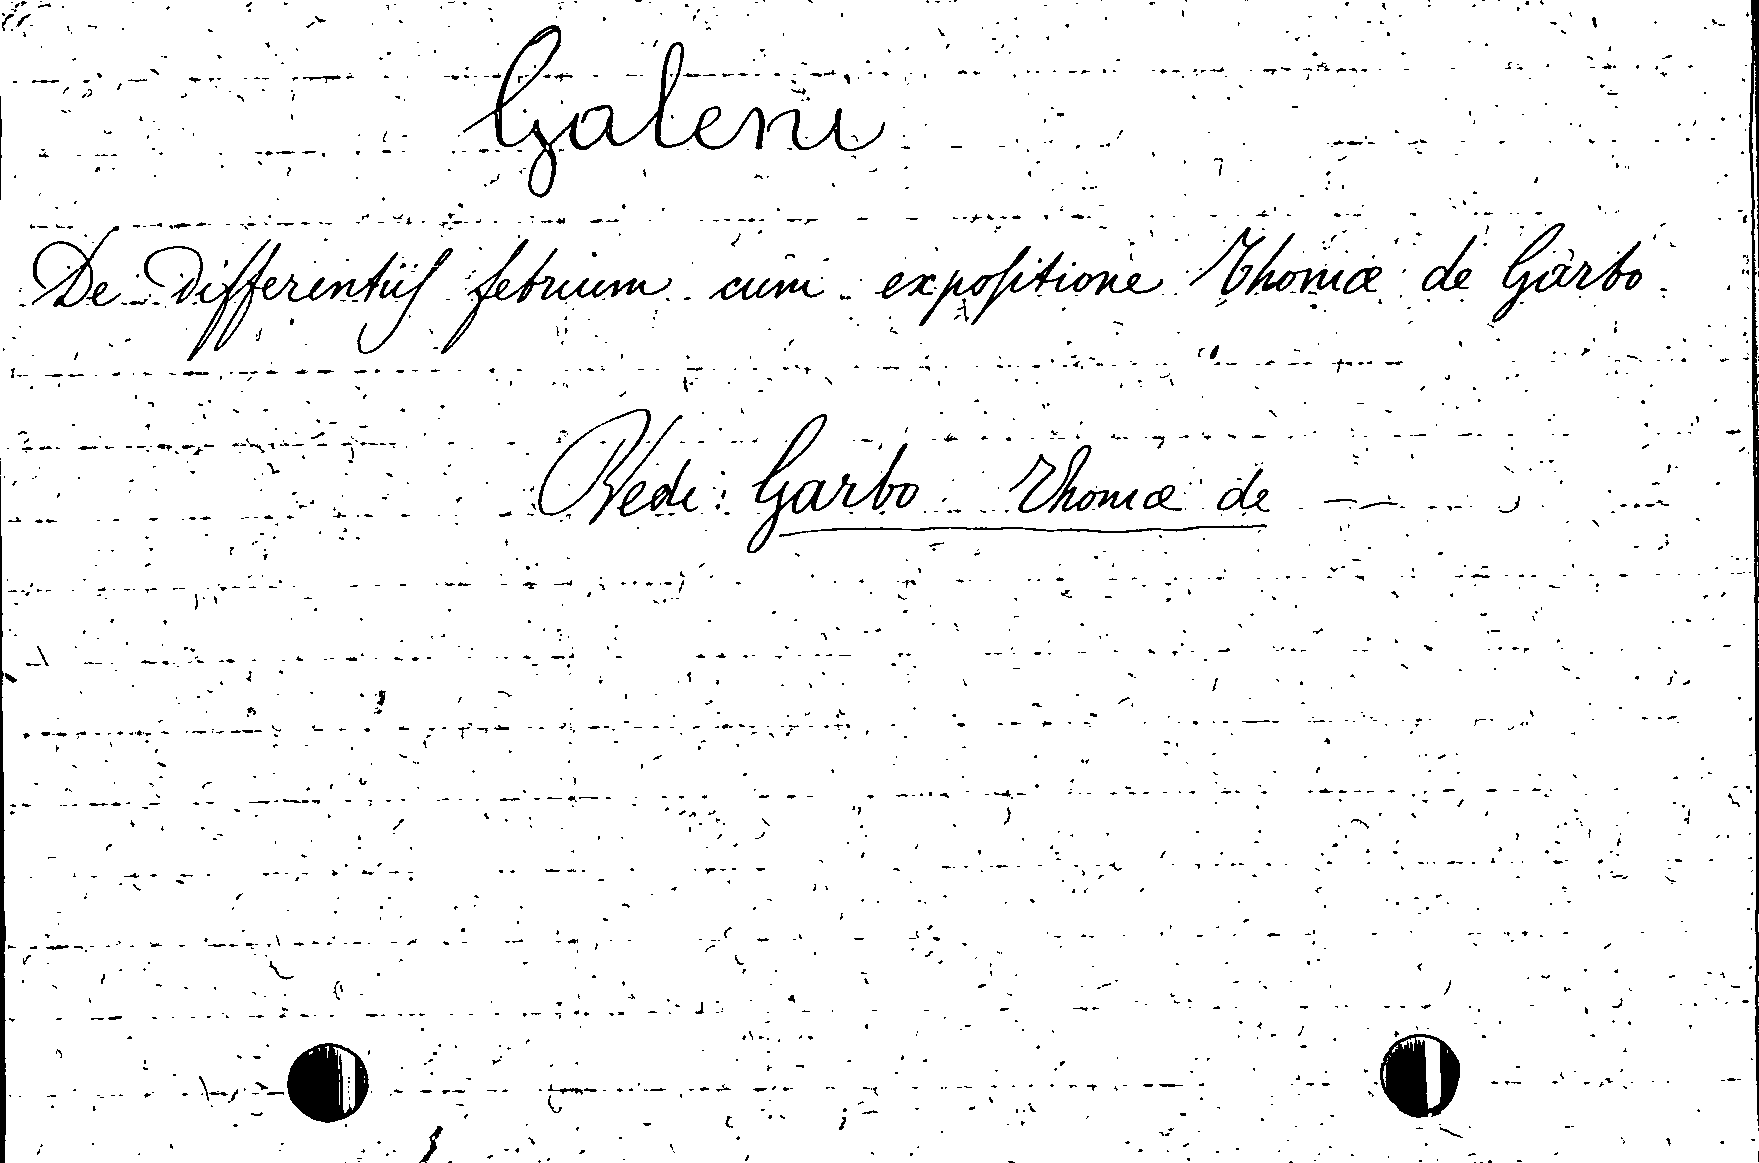 Galeni
De Differentiis febrium cum expositione Thomæ de Garbo
Vedi: Garbo Thomæ de